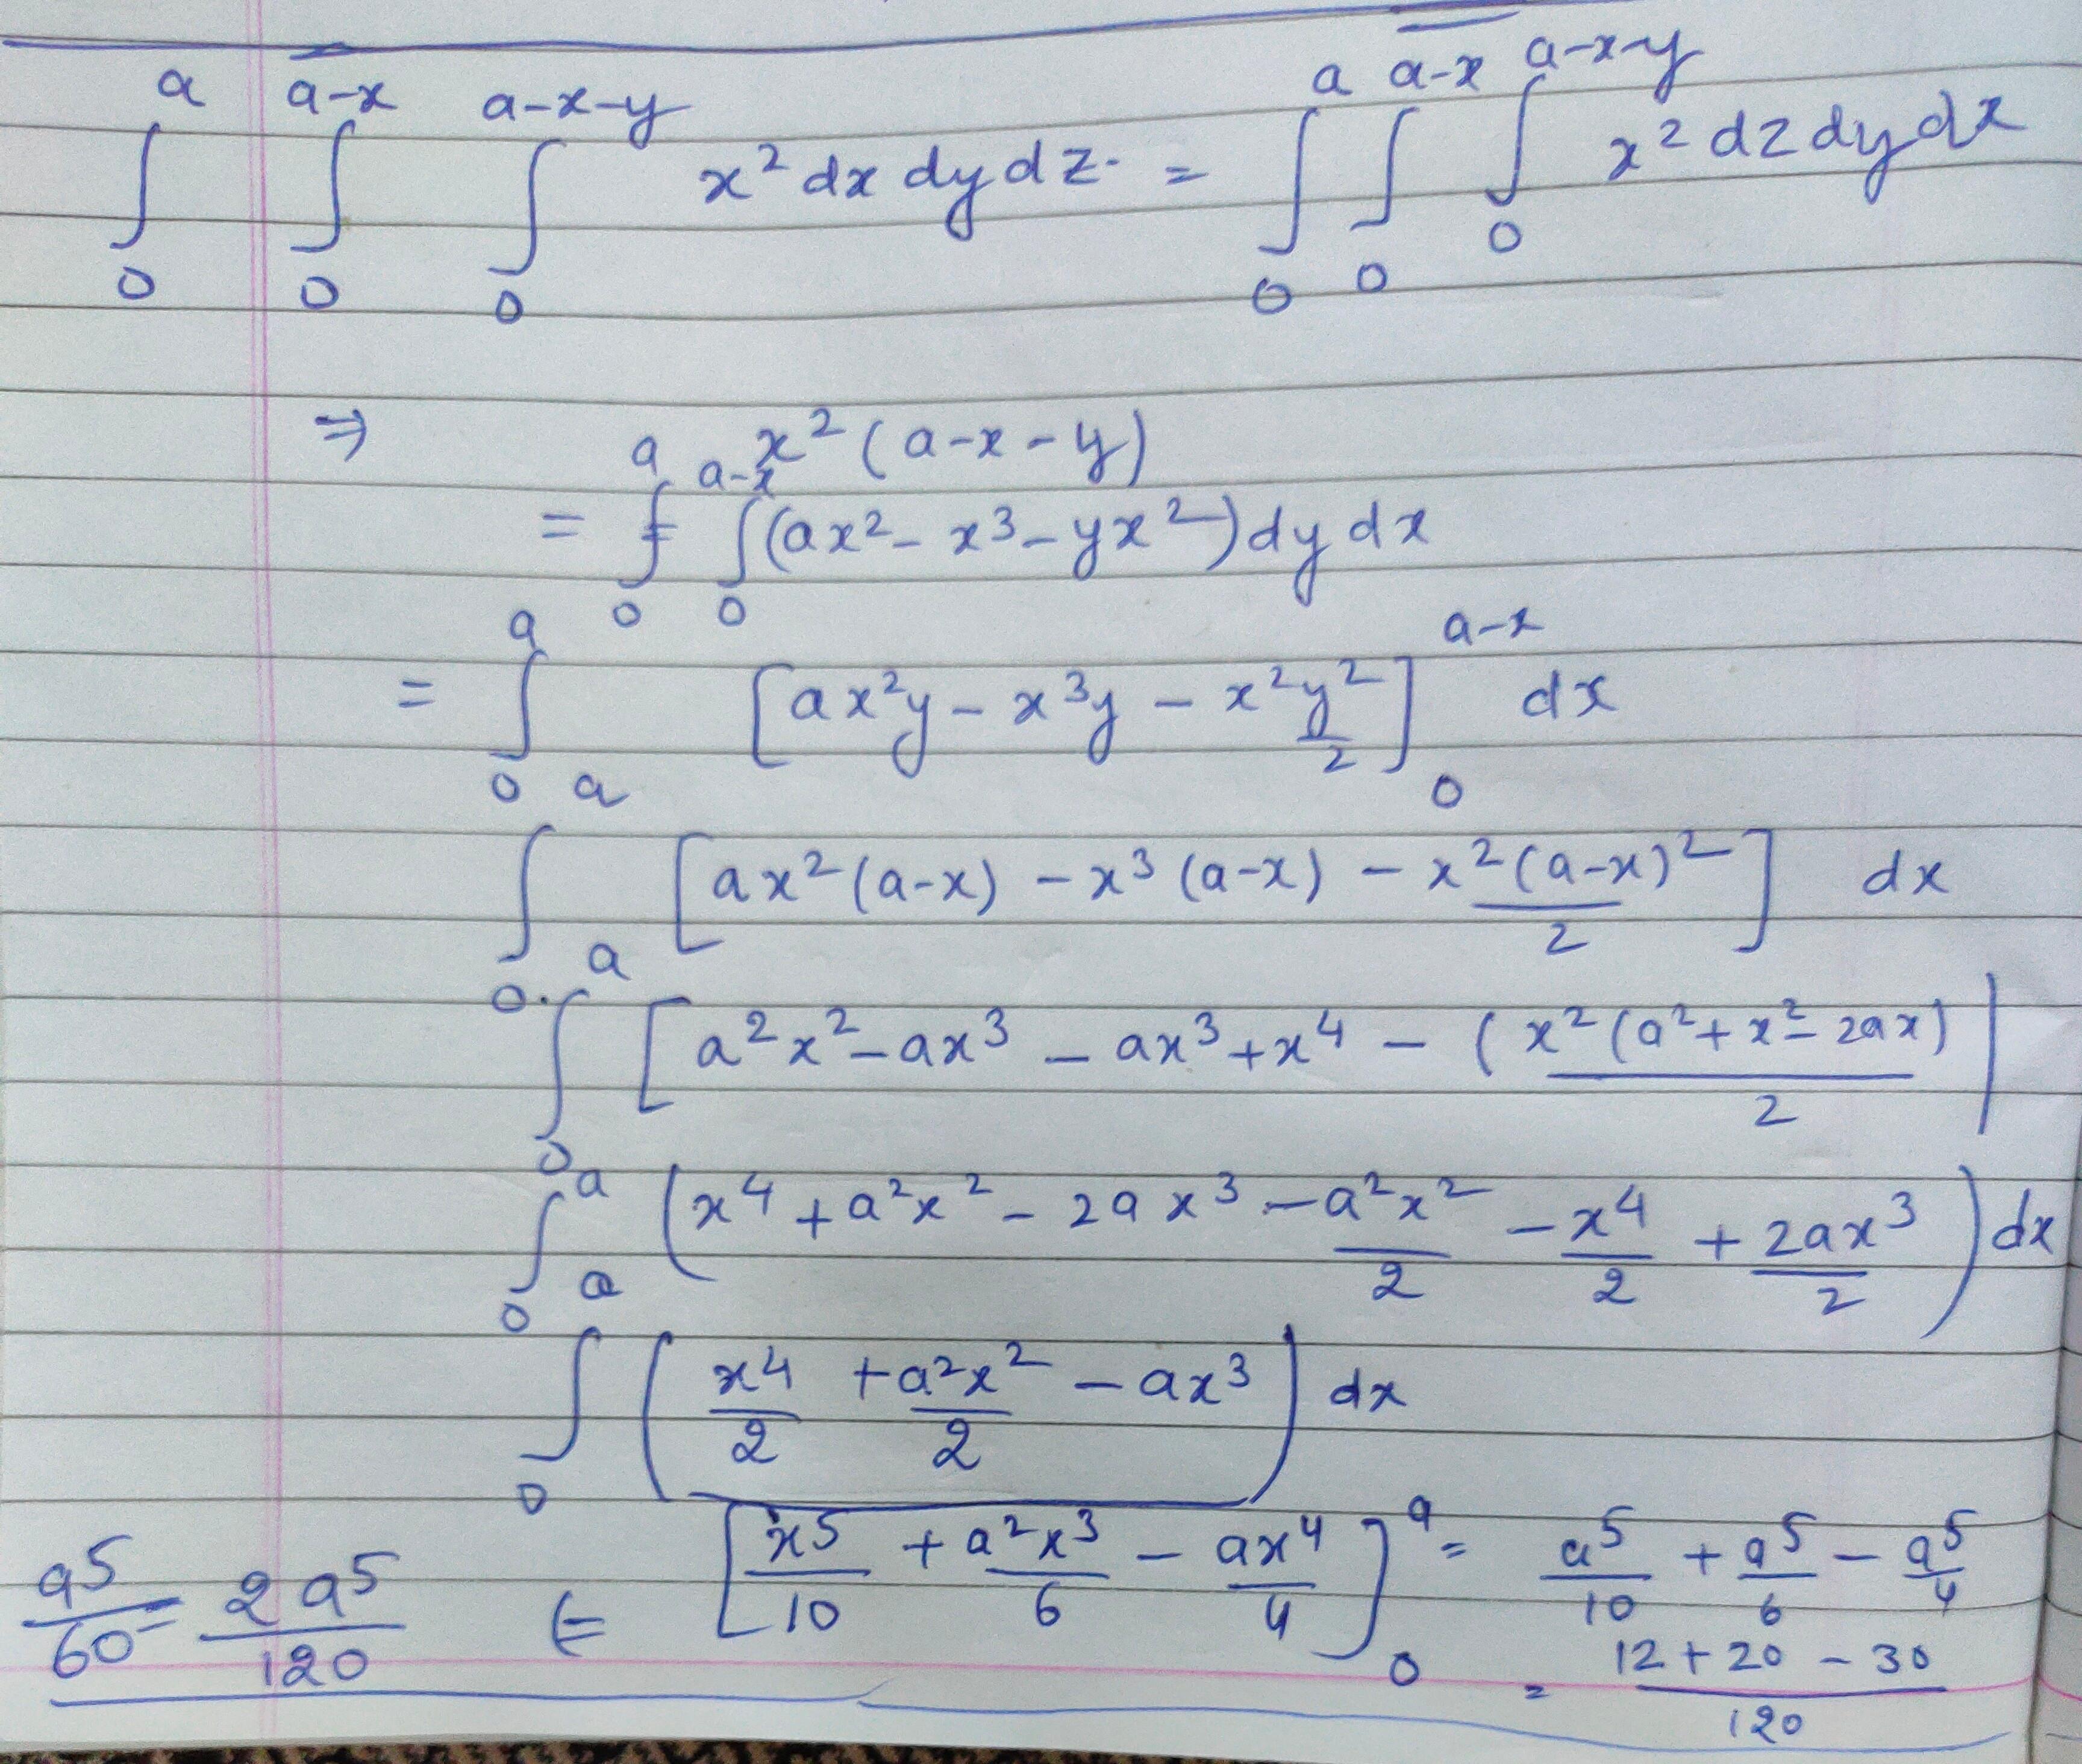 ∫₀ᵃ ∫₀ᵃ⁻ˣ ∫₀ᵃ⁻ˣ⁻ʸ x² dx dy dz. = ∫₀ᵃ ∫₀ᵃ⁻ˣ ∫₀ᵃ⁻ˣ⁻ʸ x² dz dy dx
⇒ x² (a-x-y)
= ∫₀ᵃ ∫₀ᵃ⁻ˣ (ax² - x³ - yx²) dy dx
= ∫₀ᵃ [ax²y - x³y - x²y²/2]₀ᵃ⁻ˣ dx
∫₀ᵃ [ax²(a-x) - x³(a-x) - x²(a-x)²/2] dx
∫₀ᵃ [a²x² - ax³ - ax³ + x⁴ - (x²(a² + x² - 2ax)/2]
∫₀ᵃ (x⁴ + a²x² - 2ax³ - a²x²/2 - x⁴/2 + 2ax³/2) dx
∫₀ᵃ (x⁴/2 + a²x²/2 - ax³) dx
[x⁵/10 + a²x³/6 - ax⁴/4]₀ᵃ = a⁵/10 + a⁵/6 - a⁵/4
= 12 + 20 - 30/120
a⁵/60 = 2a⁵/120 ⇐